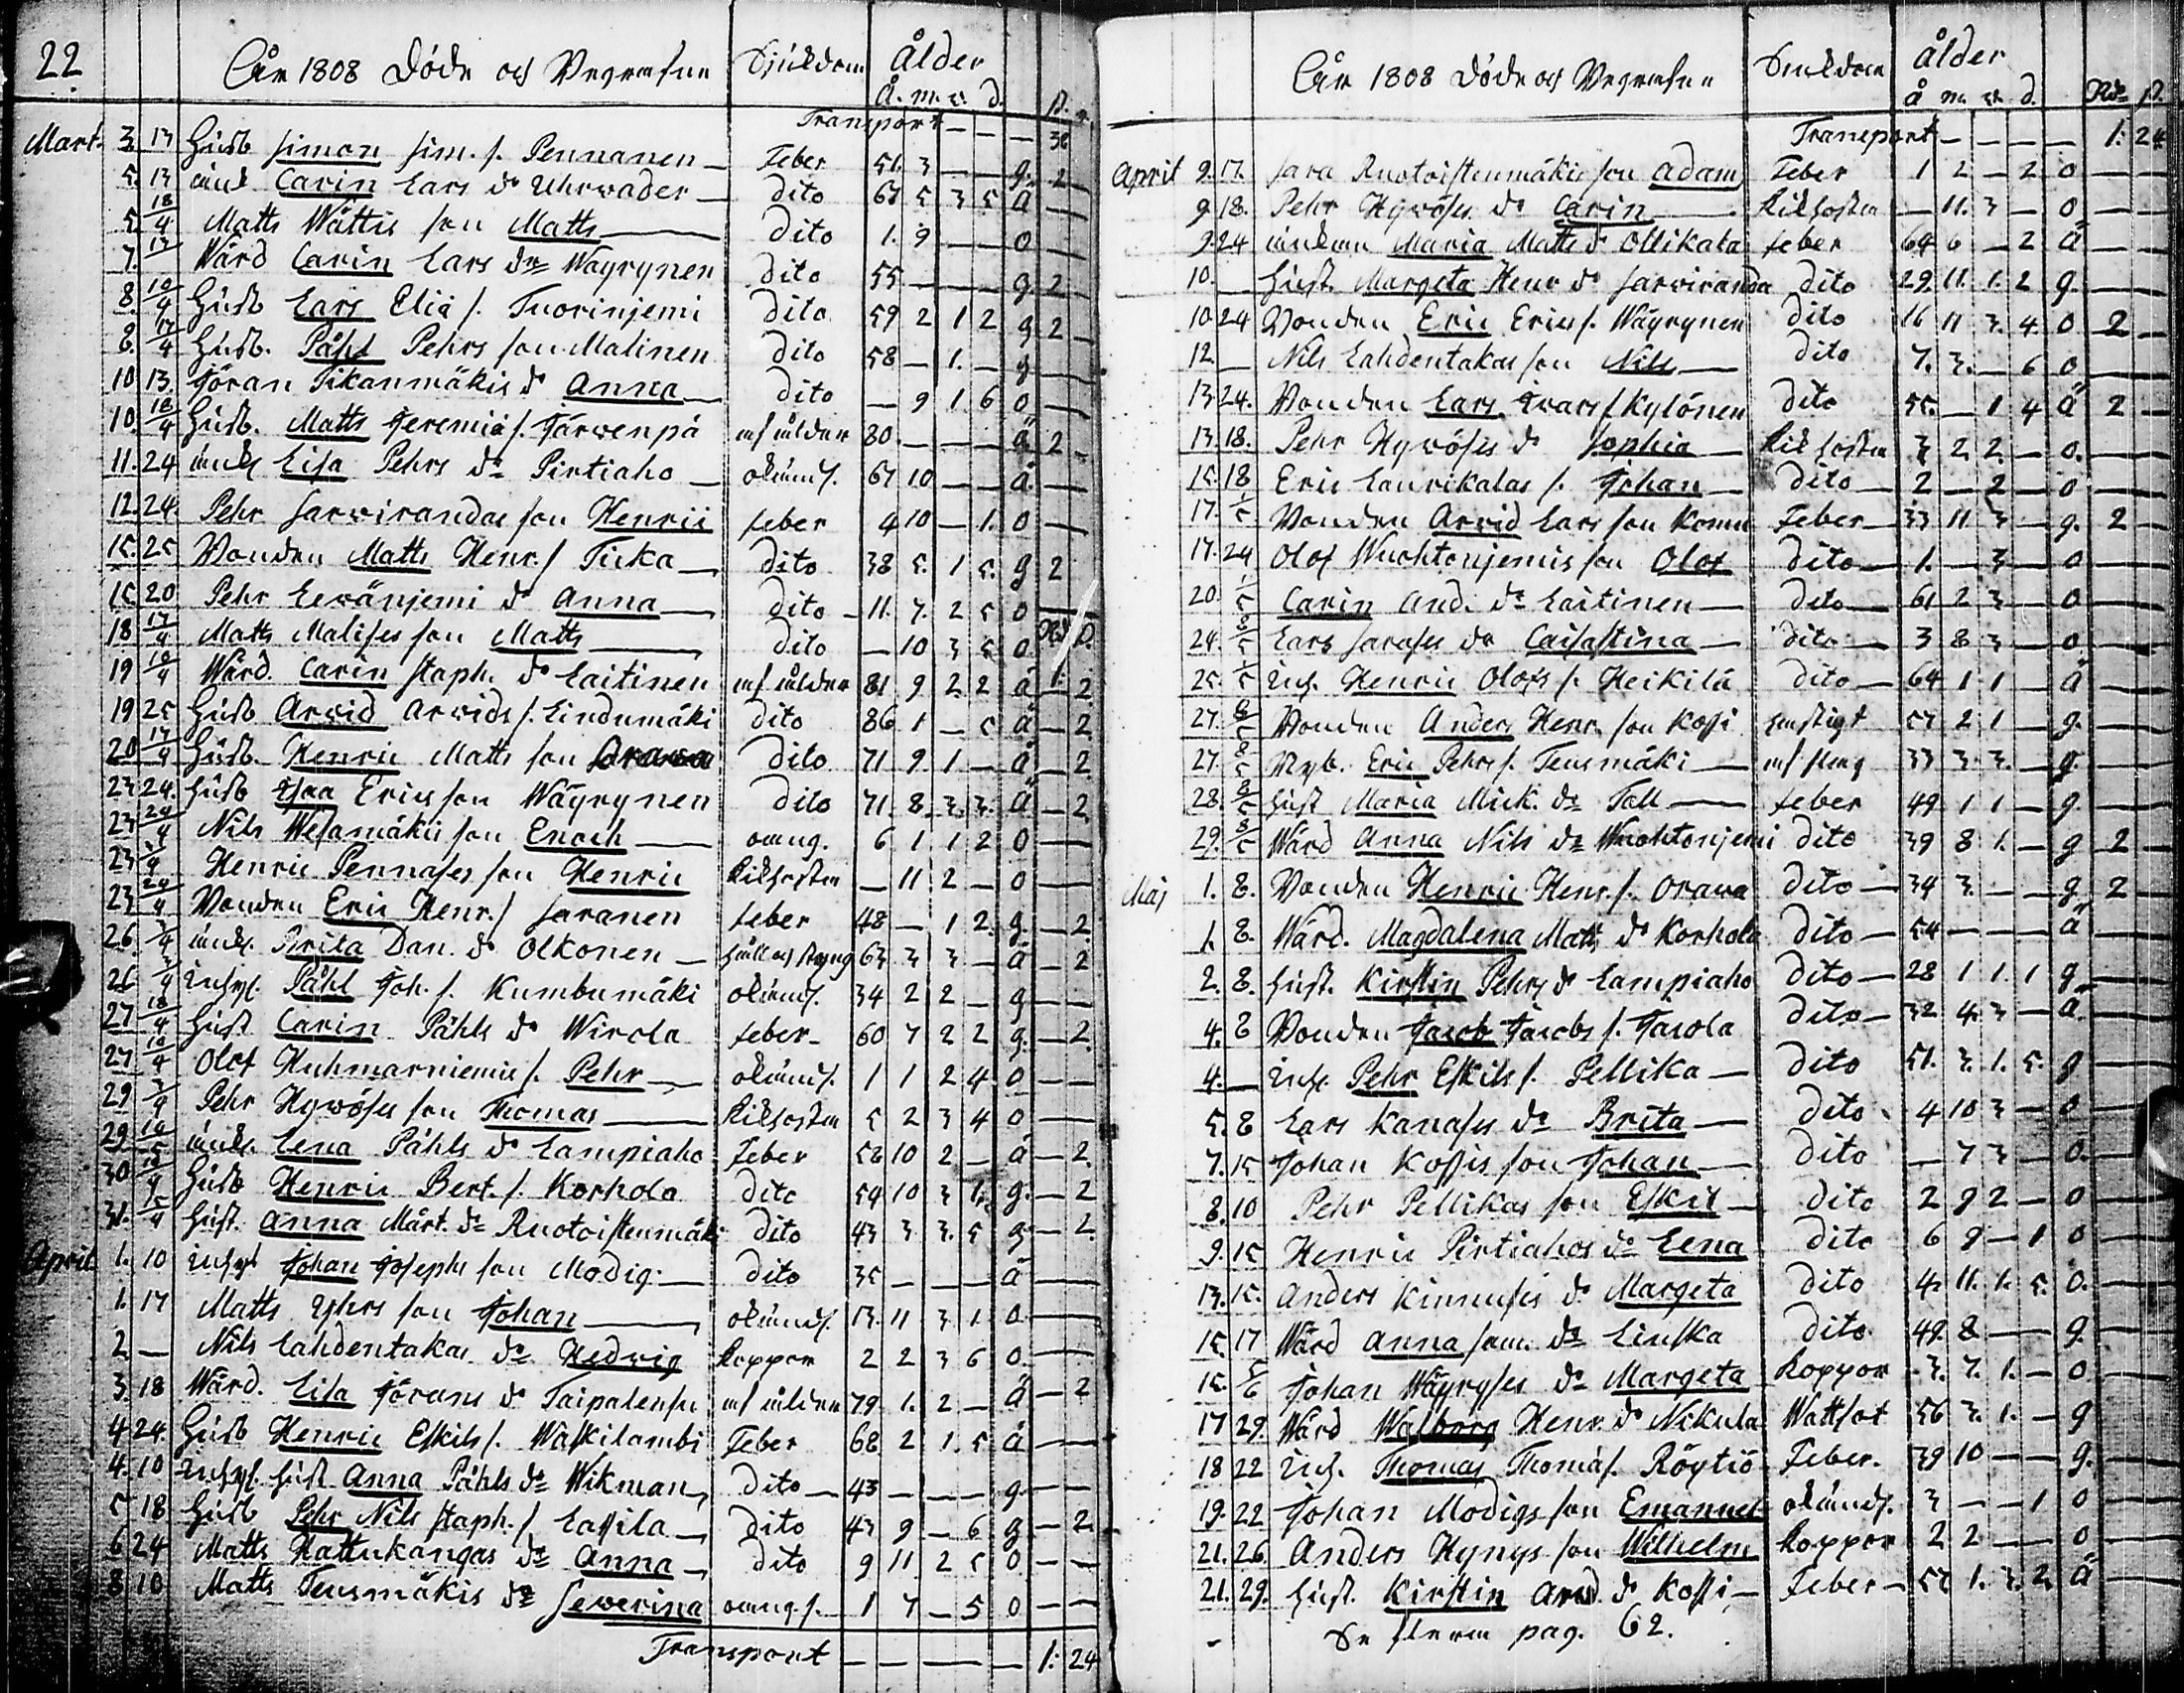 22
År 1808 Döde och Begrafne Sjukdom Ålder
Å. m. v. d.
Transport — — — 38
Mart. 3 13 Husb Simon Sim. s. Pennanen — Feber 51. 3 — — g. 2
5. 13 Carin Lars dr Uhrwader — dito 67 5 3 5 ä —
5 18/4 Matts Wättis son Matts — dito 1. 9 — — o —
7. 17 Wärd Carin Lars dr Wäyrynen dito 55 — — — g 2
8. 10/4 Husb Lars Eliæ s. Tuorinjemi dito 59 2 1 2 g 2
8. 17/4 Husb. Påhl Pehrs son Malinen dito 58 — 1. — g —
10 13. Göran Sikanmäkis dr Anna — dito — 9 1 6 o —
10. 18/4 Husb. Matts Jeremiæ s. Järwenpä af ålder 80 — — — ä 2
11. 24 Lisa Pehrs dr Pirtiaho — okänd s. 67 10 — — ä —
12. 24. Pehr Sarwirandas son Henric feber 4 10 — 1. o —
15. 25 Bonden Matts Henr. s. Ticka — dito 38 5. 1 5. g 2
15 20 Pehr Lewänjemi dr Anna — dito — 11. 7. 2 5 o
18 17/4 Matts Malises son Matts — dito — 10 3 5 o
19 10/4 Wärd. Carin Staph. dr Laitinen af ålder 81 9 2 2 ä 1: 2
19 25 Husb Arwid Arwids s. Lindumäki dito 86 1 — 5 ä — 2
20 17/4 Husb. Henric Matts son Orawa dito 71 9 1 — ä — 2
23 24. Husb Isaa Erics son Wäyrynen dito 71. 8. 3. 3. ä — 2
23 24/4 Nils Wesamäkis son Enoch — 6 1 1 2 o —
23 Henric Pennases son Henric Kikhosta — 11 2 — o —
23 24/4 Bonden Eric Henr. s. Saranen feber 48 — 1 2. g. — 2.
26. 3/4 Brita Dan. dr Olkonen — håll och styng 63 3 3 — ä — 2
26 3/4 Inhys. Påhl Joh. s. Kumbumäki okänd s. 34 2 2 — g —
27 18/4 Hust Carin Påhls dr Wirola feber — 60 7 2 2 g. — 2.
27 10/4 Olof Huhmarniemis s. Pehr — okänd s. 1 1 2 4 o —
29 3/4 Pehr Hywöses son Thomas — Kikhosta 5 2 3 4 o —
29 Lena Påhls dr Lampiaho Feber 56 10 2 — ä — 2.
30 Husb Henric Bert. s. Korhola dito 54 10 3 1. g. — 2
31. 5/4 Hust. Anna Mårt. dr Ruotoistenmäki dito 43 3 3. 5 g — 2.
April 1. 10 Inhys Johan Josephs son Modig. — dito 35 — — — ä —
1. 17 Matts Yhrs son Johan — okänd s. 13. 11 3 1. o —
2 — Nils Lahdentakas dr Hedwig Koppor 2 2 3 6 o —
3 18 Wärd. Lisa Görans dr Taipalensu af ålder 79 1. 2 — ä — 2
4 24. Husb Henric Eskils s. Waskilambi Feber 68 2 1. 5 ä —
4. 10 Inhys. Hust Anna Påhls dr Wikman — dito — 43 — — — g —
5 18 Husb Pehr Nils Staph. s. Lassila — dito 43 9 — 6 g — 2
6 24 Matts Hattukangas dr Anna — dito 9 11 2 5 o —
8 10 Matts Teusmäkis dr Severina 1 7 — 5 o —
Transport — — — — 1: 24
År 1808 Döde och Begrafne Sjukdom ålder
å m. v. d. Rdr
Transport — — — — 1: 24
April 9. 17. Sara Ruotoistenmäkis son Adam Feber 1 2 — 2 o —
9 18. Pehr Hywöses dr Carin — Kikhosta — 11. 3 — o —
9. 24 Maria Matts dr Ollikala feber 64 6 — 2 ä —
10. — Hust. Margeta Henr dr Sarwiranda dito 29 11. 1. 2 g. —
10 24 Bonden Eric Erics s. Wäyrynen dito 16 11 3. 4. o 2
12 — Nils Lahdentakas son Nils — dito 7. 3. — 6 o —
13 24. Bonden Lars Ivars s Kylönen dito 55. — 1 4 ä 2
13. 18. Pehr Hywöses dr Sophia — Kikhosta 3 2 2. — o. —
15. 18 Eric Laurikalas s. Johan — dito — 2 — 2 — o —
17. 1/5 Bonden Arvid Lars son Komu Feber — 33 11 3 — g. 2
17. 24 Olof Wuohtonjemis son Olof dito — 1. — 3 — o —
20. 1/5 Carin And. dr Laitinen — dito — 61 2 3 — o —
24. 8/5 Lars Sarases dr Caisastina — dito — 3 8 3 — o —
25. 1/5 Inh. Henric Olofs s. Heikilä dito — 64 1 1 — ä —
27. 8/5 Bonden Anders Henr. son Kossi hastigt 57 2 1 — g. —
27. 8/5 Nyb. Eric Pehrs s. Teusmäki — af slag 33 3. 3. — g. —
28. 8/5 Hust Maria Mick. dr Tall — feber 49 1 1 — g —
29. 8/5 Wärd Anna Nils dr Wuohtonjemi dito 39 8 1. — g 2
Maj 1. 8. Bonden Henric Henr. s. Orawa dito — 34 3. — — g. 2
1. 8. Wärd. Magdalena Matts dr Korhola dito — 54 — — — ä —
2. 8. Hust. Kirstin Pehrs dr Lampiaho dito — 28 1 1. 1 g —
4. 8 Bonden Jacob Jacobs s. Jacola dito — 32 4. 3 — ä. —
4. — Inh. Pehr Eskils s. Pellika — dito 51. 3. 1. 5. g —
5. 8 Lars Kanases dr Brita — dito 4 10 3 — o —
7. 15 Johan Kossis son Johan — dito — 7 3 — o. —
8. 10 Pehr Pellikas son Eskil — dito 2 9 2 — o —
9. 15 Henric Pirtiahos dr Lena dito 6 9 — 1 o —
13. 15. Anders Kinnuses dr Margeta dito 4. 11. 1. 5. o. —
15. 17 Wärd Anna Sam. dr Linska dito 49. 8 — — g. —
15. 5/6 Johan Wäyryses dr Margeta Koppor 3. 7. 1. — o. —
17 29. Wärd Walborg Henr. dr Nikula Wattsot 56 3. 1. — g —
18 22 Inh. Thomas Thomæ s. Röytiö Feber. 39 10 — — g. —
19. 22 Johan Modigs son Emanuel okänd s. 3 — — 1 o —
21. 26. Anders Hynys son Wilhelm Koppor 2 2 — — o —
21. 29. Hust. Kirstin Arvid. dr Kossi — Feber — 57 1. 3. 2. ä —
Se flera pag. 62.